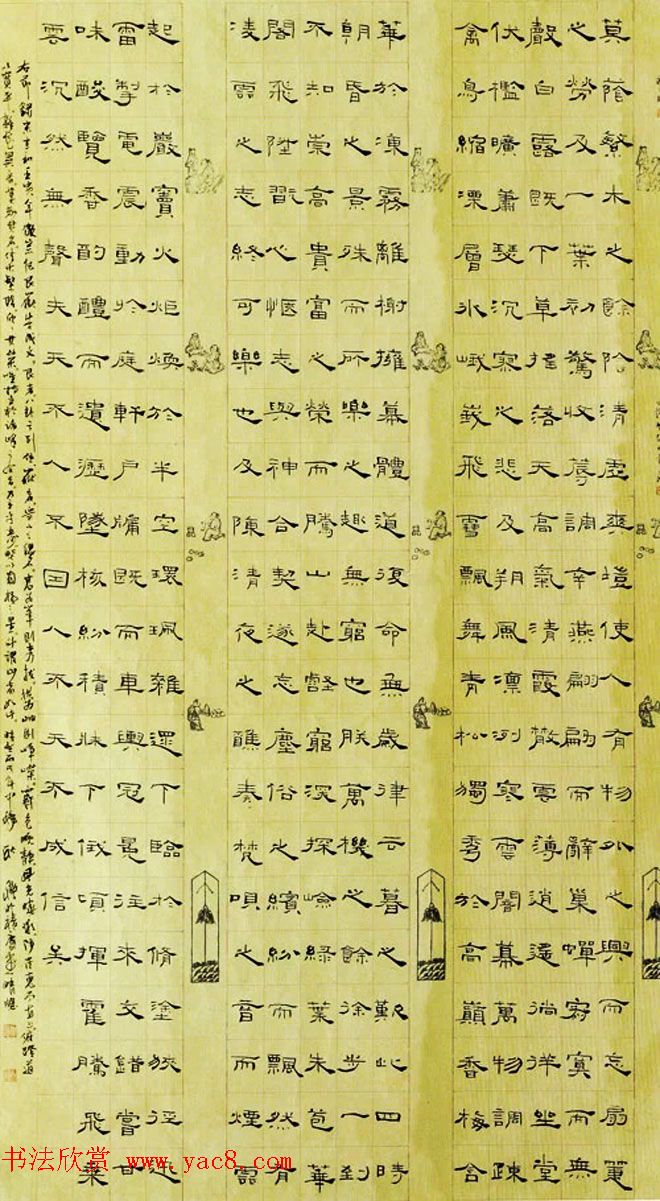 莫蔭繁木之餘陰清虛爽塏使人有物外之興而忘扇箑
之勞及一葉初驚收蓐調辛燕翩翩而辭巢蟬寂寞而無
聲白露既下草搖落天高氣清霞散雲薄逍遙徜徉坐堂
伏檻曠蕭瑟沉寥之悲及朔風凜冽寒雲闇幕萬物調疎
禽鳥縮凓層冰峨嶷飛雪飄舞青松獨秀於高巔香梅含
華於凍霧離榭擁幕體道復命無歲律云暮之歎此四時
朝昏之景殊而所樂之趣無窮也朕萬機之餘徐步一到
不知崇高貴富之榮而騰山赴壑窮深探嶮綠葉朱苞華
閣飛陞翫心愜志與神合契遂忘塵俗之繽紛而飄然有
淩雲之志終可樂也及陳清夜之醮奏梵唄之音而煙雲
起於巖竇火炬煥於半空環珮雜遝下臨於脩塗狹徑迅
雷掣電震動於庭軒戶牖既而車輿冠冕往來交錯嘗甘
味酸覽香酌醴而遺瀝墜核紛積牀下俄頃揮霍騰飛乘
雲沉然無聲夫天不人不因人不天不成信矣
书法欣赏 www.yac8.com